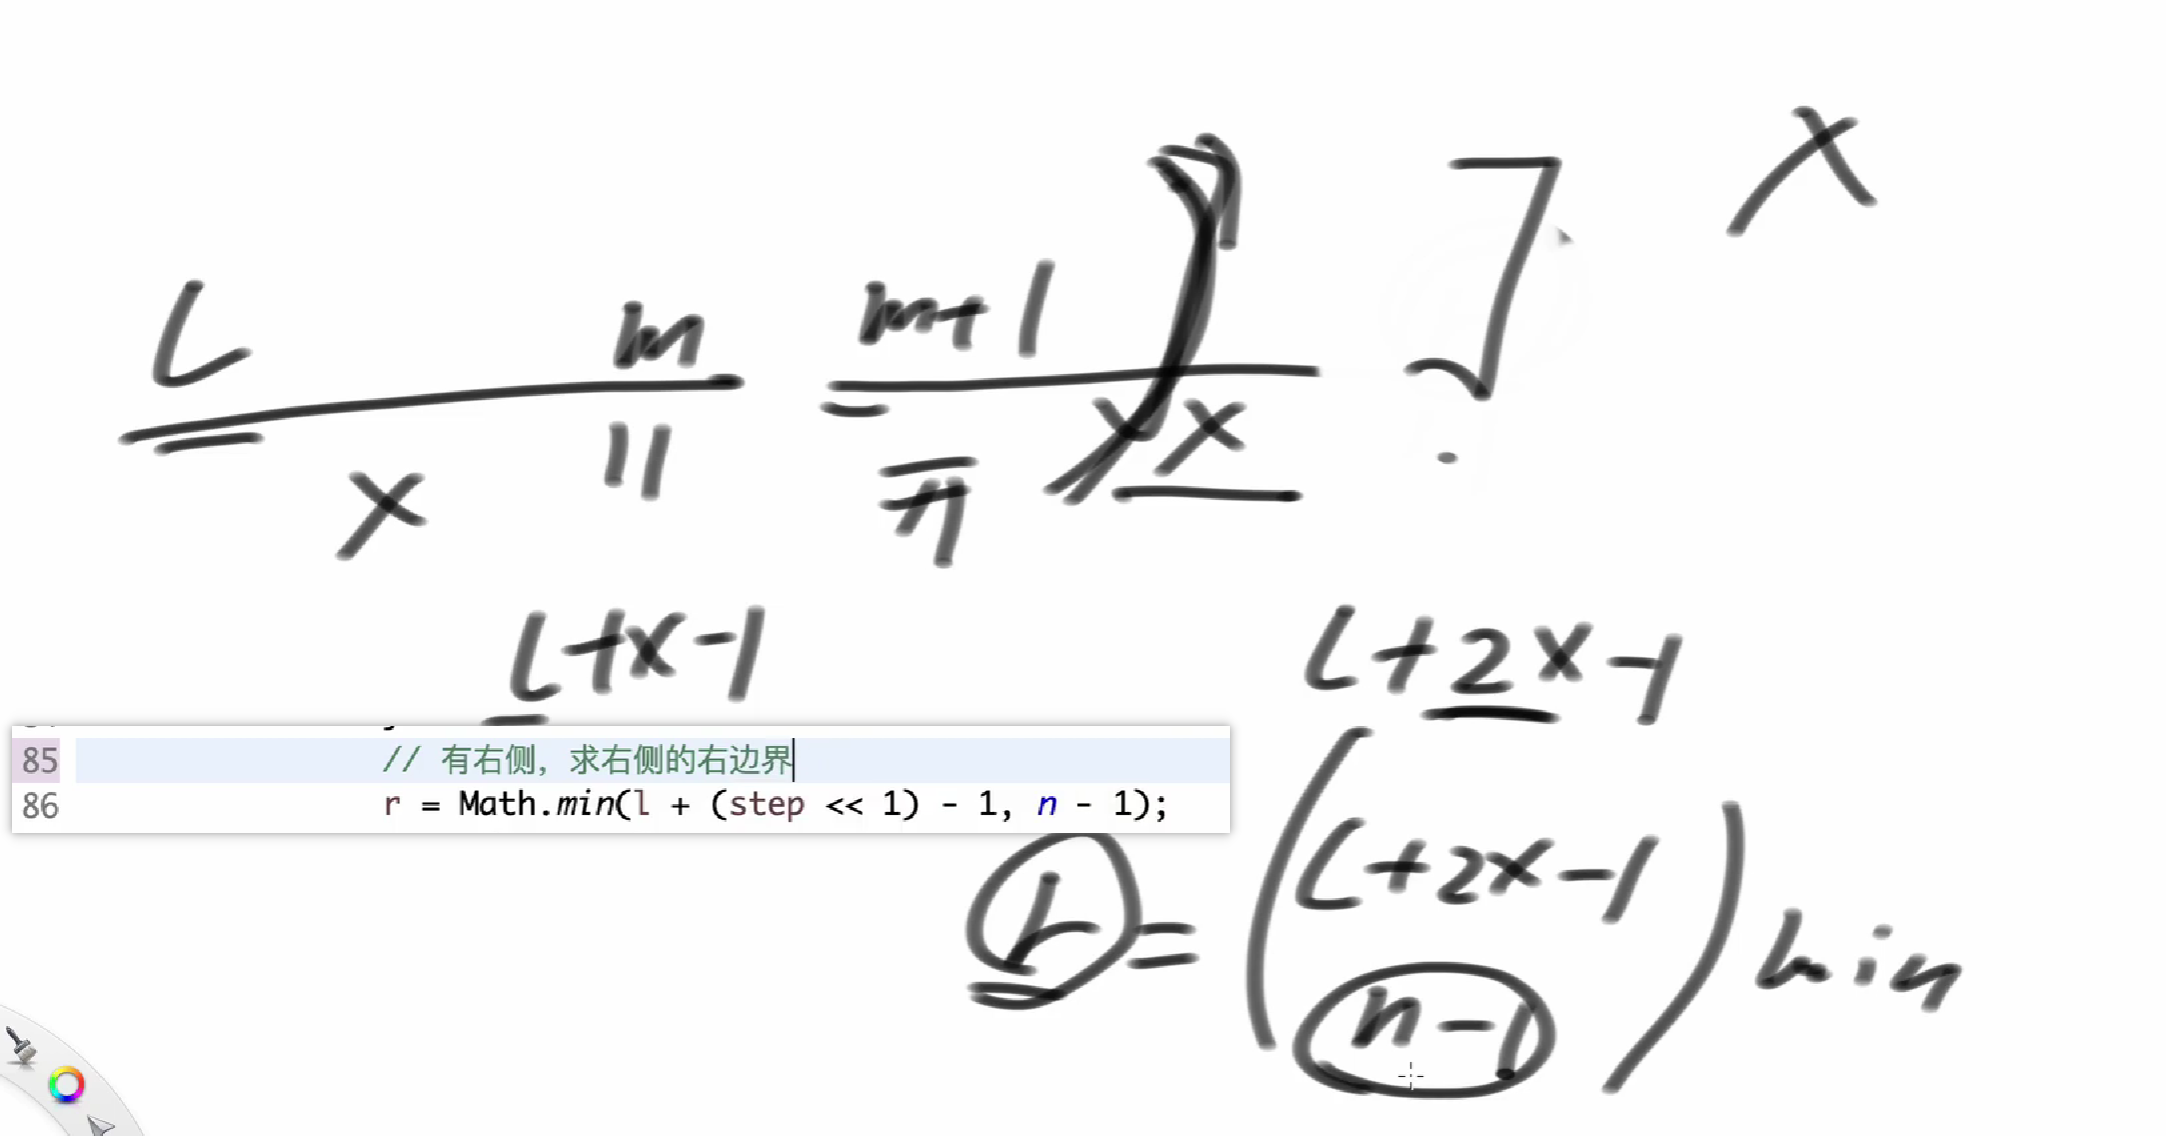 x
L m m+1
x x x
L+x-1 L+2x-1
85 // 有右侧，求右侧的右边界
86 r = Math.min(l + (step << 1) - 1, n - 1);
r = (L+2x-1
n-1) min